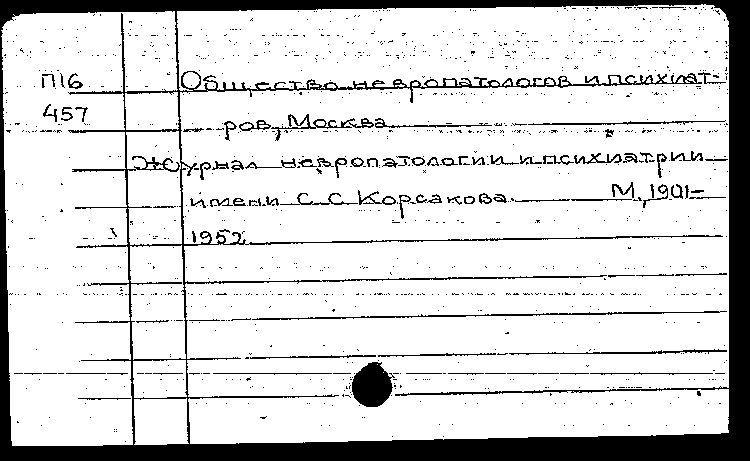 П16 Общество невропатологов и психиат-
457 ров, Москва
Журнал невропатологии и психиатрии
имени С С Корсакова. М., 1901-
1952